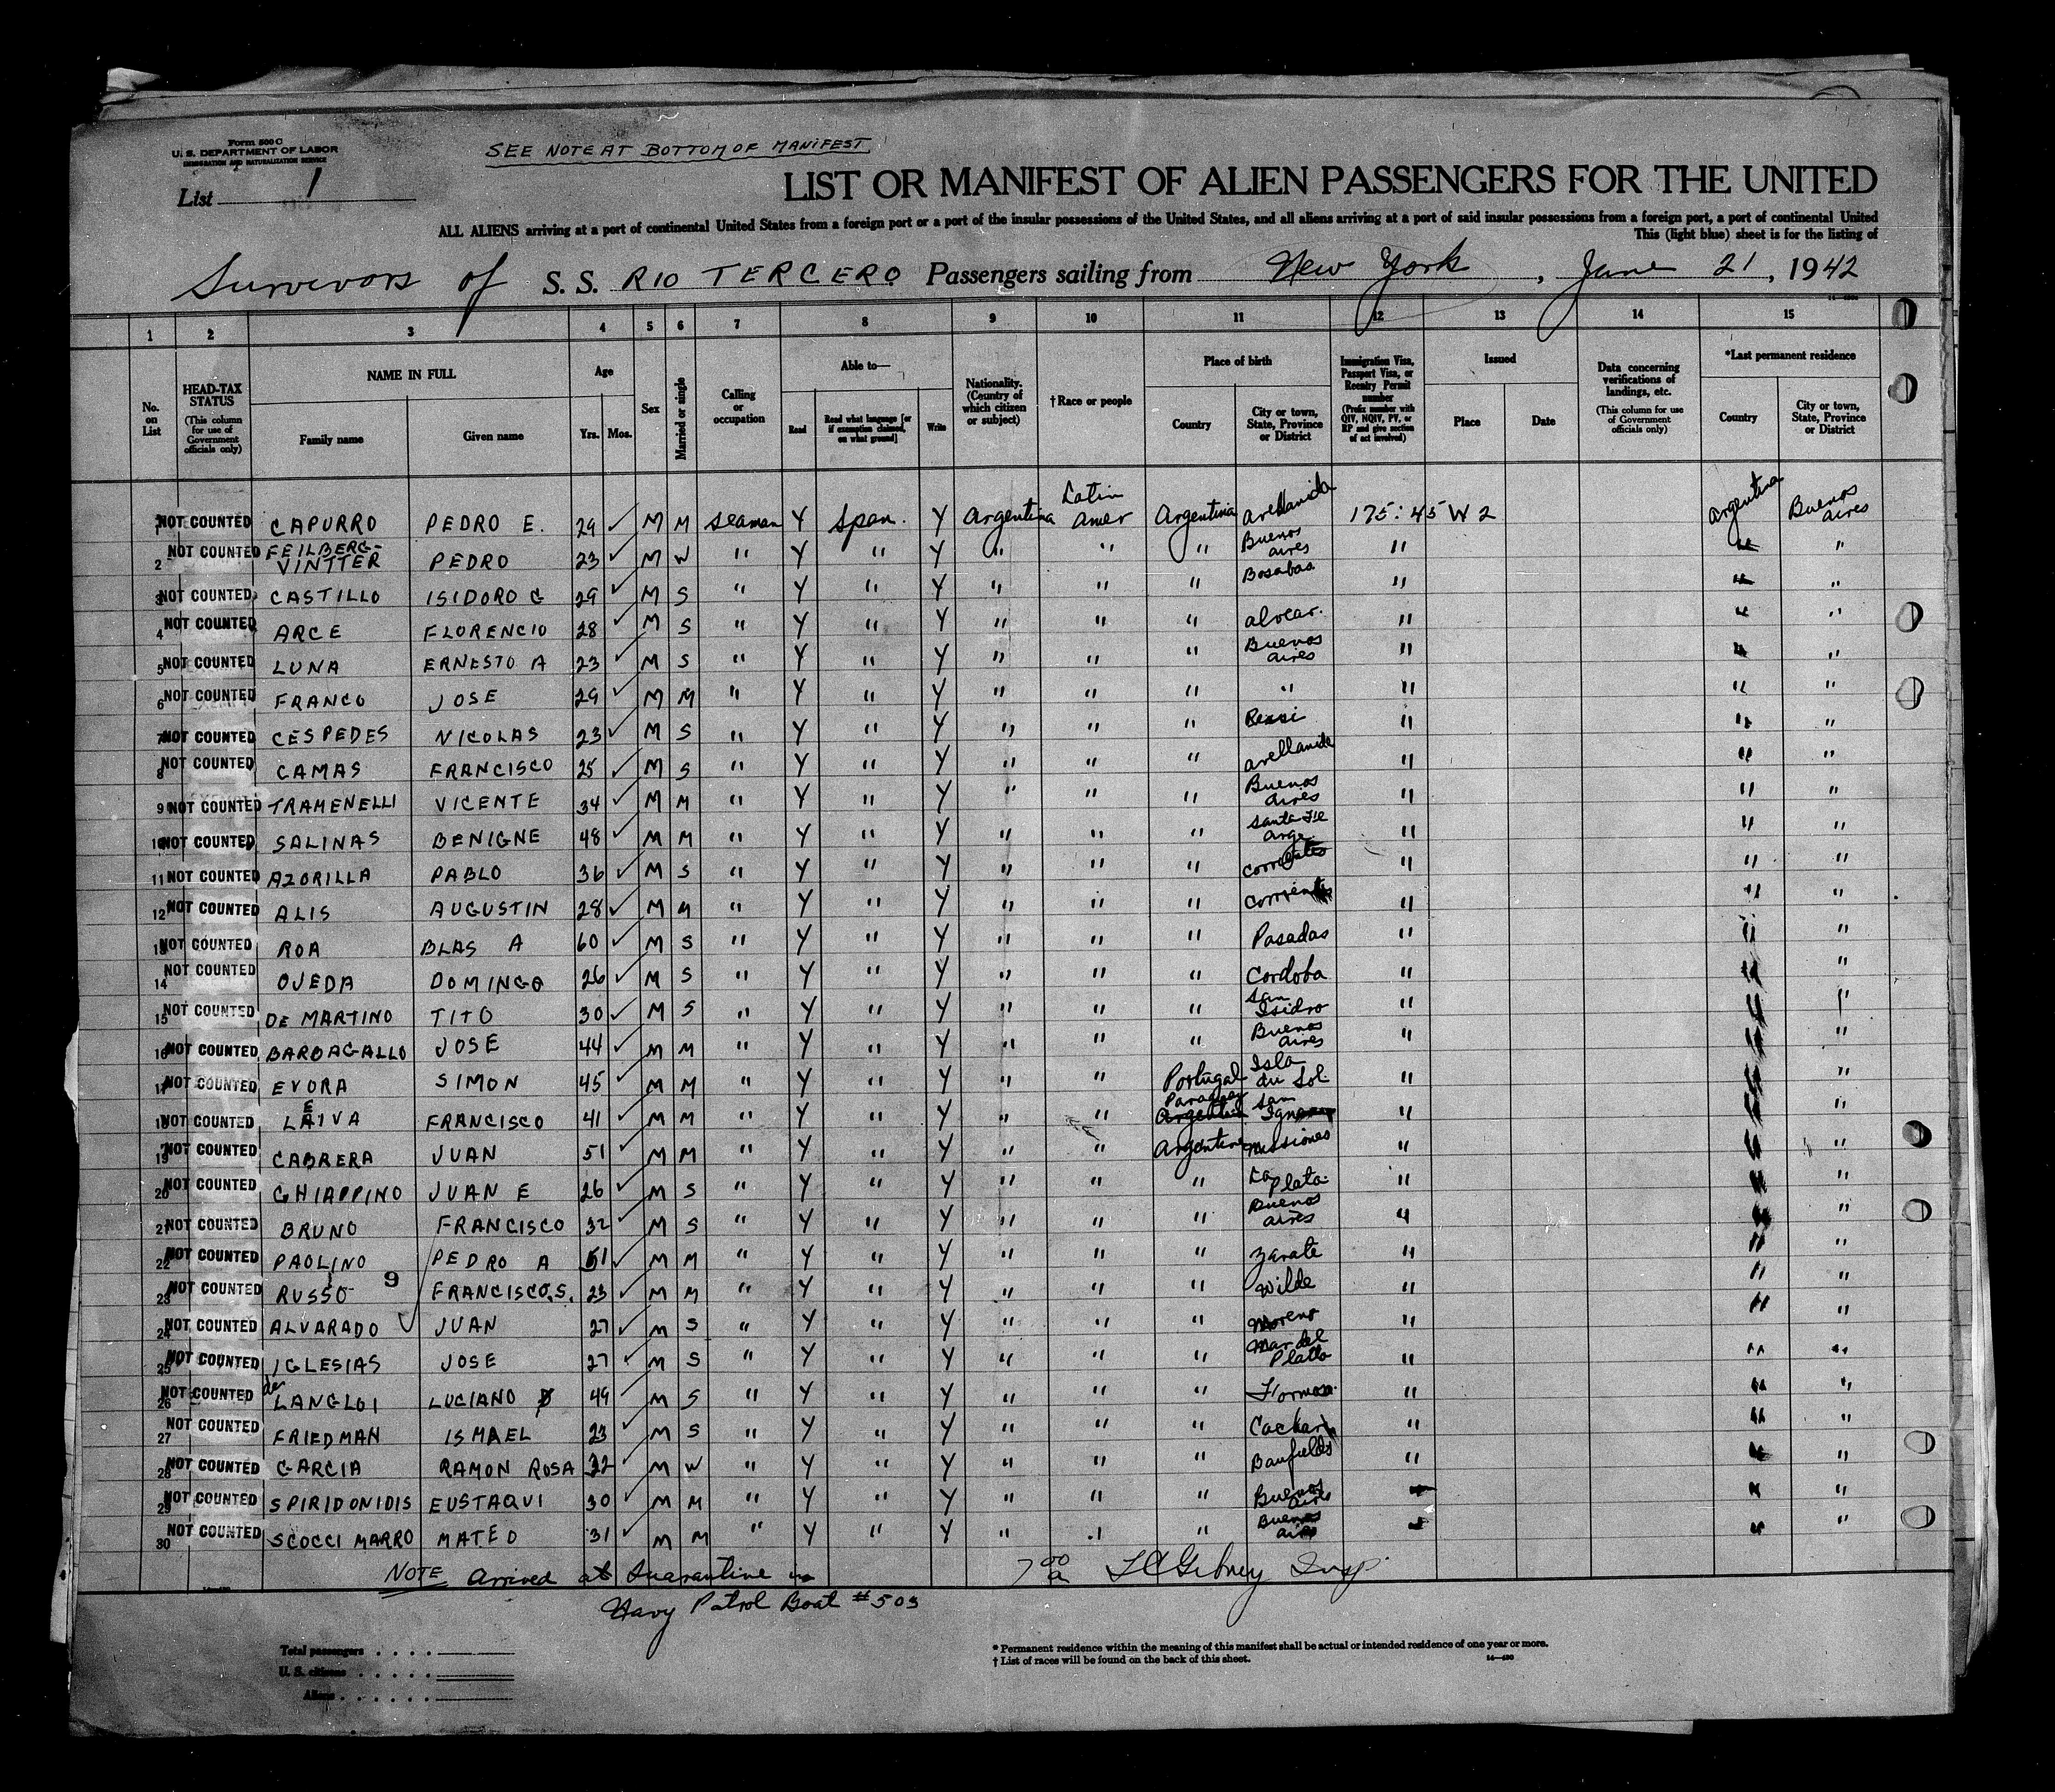 Form 500 C
U. S. DEPARTMENT OF LABOR
IMMIGRATION AND NATURALIZATION SERVICE
SEE NOTE AT BOTTOM OF MANIFEST
List 1
LIST OR MANIFEST OF ALIEN PASSENGERS FOR THE UNITED
ALL ALIENS arriving at a port of continental United States from a foreign port or a port of the insular possessions of the United States, and all aliens arriving at a port of said insular possessions from a foreign port, a port of continental United
This (light blue) sheet is for the listing of
Survivors of S. S. RIO TERCERO Passengers sailing from New York, June 21, 1942
1 2 3 4 5 6 7 8 9 10 11 12 13 14 15
No. on List
HEAD-TAX STATUS (This column for use of Government officials only)
NAME IN FULL Family name Given name
Age Yrs. Mos.
Sex
Married or single
Calling or occupation
Able to— Read Read what language [or if exemption claimed, on what ground] Write
Nationality. (Country of which citizen or subject)
†Race or people
Place of birth Country City or town, State, Province or District
Immigration Visa, Passport Visa, or Reentry Permit number (Prefix number with QIV, NQIV, PV, or RP and give section of act involved)
Issued Place Date
Data concerning verifications of landings, etc. (This column for use of Government officials only)
*Last permanent residence Country City or town, State, Province or District
1 NOT COUNTED CAPURRO PEDRO E. 29 ✓ M M Seaman Y Span. Y Argentina Latin Amer Argentina Avellanida 175:45 W 2 Argentina Buenos Aires
2 NOT COUNTED FEILBERG-VINTTER PEDRO 23 ✓ M W " Y " Y " " " Buenos Aires " " "
3 NOT COUNTED CASTILLO ISIDORO G 29 ✓ M S " Y " Y " " " " " "
4 NOT COUNTED ARCE FLORENCIO 28 ✓ M S " Y " Y " " " Alvear. " " "
5 NOT COUNTED LUNA ERNESTO A 23 ✓ M S " Y " Y " " " Buenos Aires " " "
6 NOT COUNTED FRANCO JOSE 29 ✓ M M " Y " Y " " " " " " "
7 NOT COUNTED CESPEDES NICOLAS 23 ✓ M S " Y " Y " " " " " "
8 NOT COUNTED CAMAS FRANCISCO 25 ✓ M S " Y " Y " " " Avellanida " " "
9 NOT COUNTED TRAMENELLI VICENTE 34 ✓ M M " Y " Y " " " Buenos Aires " " "
10 NOT COUNTED SALINAS BENIGNE 48 ✓ M M " Y " Y " " " Santa Fe Arge. " " "
11 NOT COUNTED AZORILLA PABLO 36 ✓ M S " Y " Y " " " " " "
12 NOT COUNTED ALIS AUGUSTIN 28 ✓ M M " Y " Y " " " Corrientes " " "
13 NOT COUNTED ROA BLAS A 60 ✓ M S " Y " Y " " " Pasadas " " "
14 NOT COUNTED OJEDA DOMINGO 26 ✓ M S " Y " Y " " " Cordoba " " "
15 NOT COUNTED DE MARTINO TITO 30 ✓ M S " Y " Y " " " San Isidro " " "
16 NOT COUNTED BARBAGALLO JOSE 44 ✓ M M " Y " Y " " " Buenos Aires " " "
17 NOT COUNTED EVORA SIMON 45 ✓ M M " Y " Y " " Portugal Isla du Sol " " "
18 NOT COUNTED LEIVA FRANCISCO 41 ✓ M M " Y " Y " " Paraguay Argentina San " " "
19 NOT COUNTED CABRERA JUAN 51 ✓ M M " Y " Y " " Argentine Missiones " " "
20 NOT COUNTED GHIAPPINO JUAN E 26 ✓ M S " Y " Y " " " La Plata " " "
21 NOT COUNTED BRUNO FRANCISCO 32 ✓ M S " Y " Y " " " Buenos Aires " " "
22 NOT COUNTED PAOLINO PEDRO A 51 ✓ M M " Y " Y " " " Zarate " " "
23 NOT COUNTED RUSSO 9 FRANCISCO.S. 23 ✓ M M " Y " Y " " " Wilde " " "
24 NOT COUNTED ALVARADO ✓ JUAN 27 ✓ M S " Y " Y " " " Moreno " " "
25 NOT COUNTED IGLESIAS JOSE 27 ✓ M S " Y " Y " " " Mar del Platto " " "
26 NOT COUNTED de LANGLOI LUCIANO 49 ✓ M S " Y " Y " " " Formosa " " "
27 NOT COUNTED FRIEDMAN ISMAEL 23 ✓ M S " Y " Y " " " Cachari " " "
28 NOT COUNTED GARCIA RAMON ROSA 32 ✓ M W " Y " Y " " " Banfields " " "
29 NOT COUNTED SPIRIDONIDIS EUSTAQUI 30 ✓ M M " Y " Y " " " Buenos Aires " " "
30 NOT COUNTED SCOCCI MARRO MATEO 31 ✓ M M " Y " Y " " " Buenos Aires " " "
NOTE Arrived at Quarantine in 7 00 a Insp.
Navy Patrol Boat #503
Total passengers
U. S. citizens
Aliens
* Permanent residence within the meaning of this manifest shall be actual or intended residence of one year or more.
† List of races will be found on the back of this sheet.